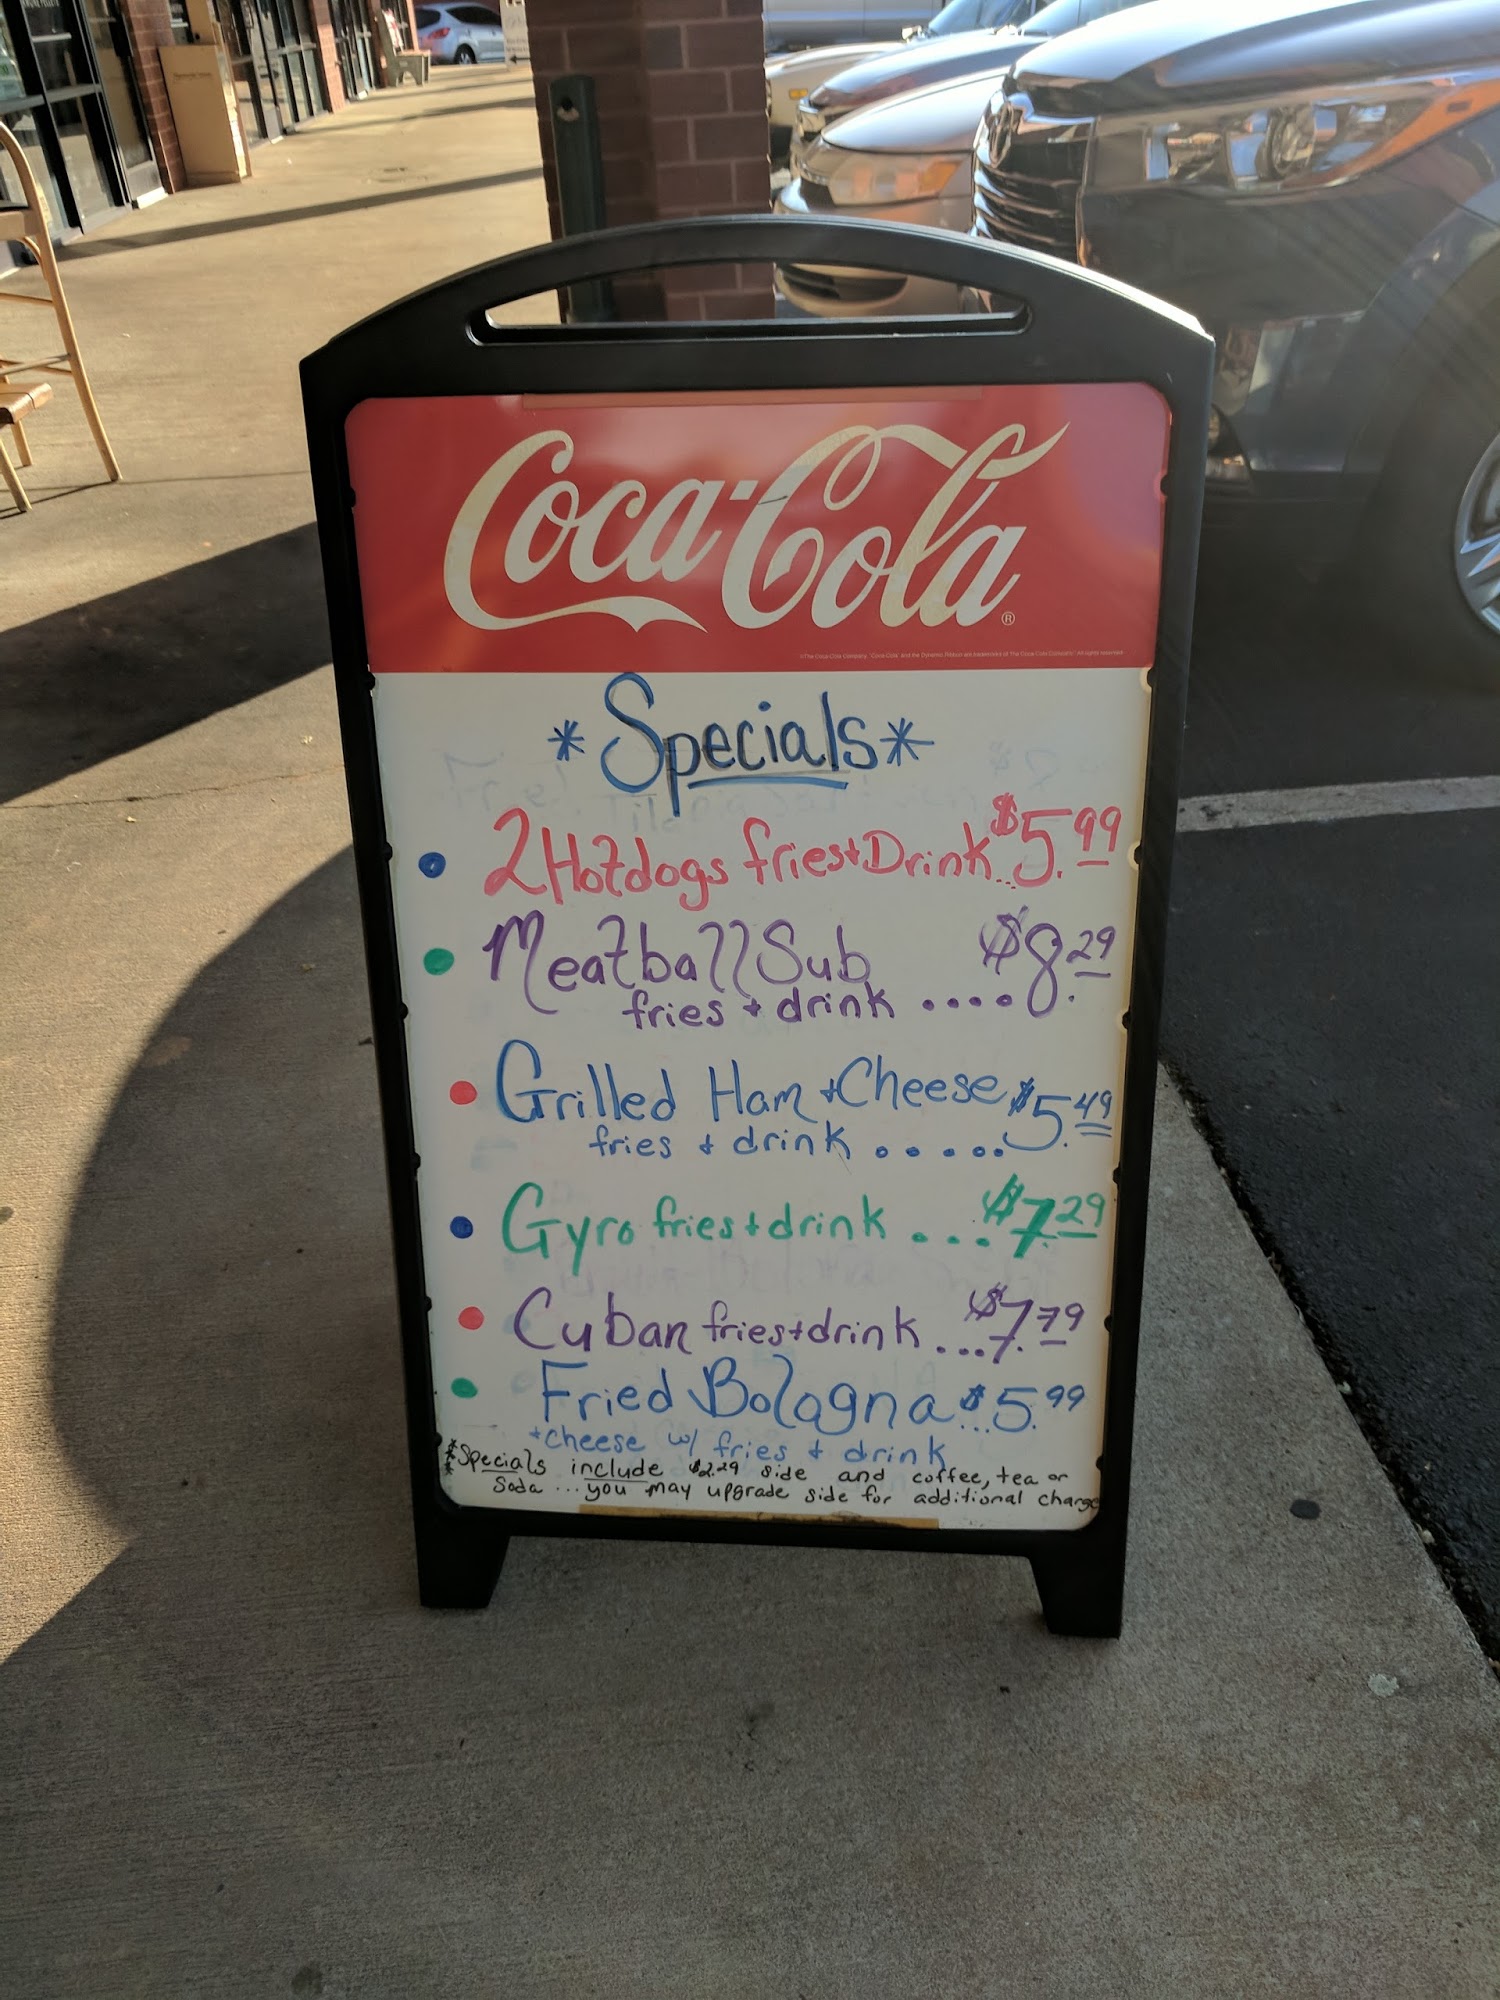 Coca-Cola®
* Specials *
• 2 Hotdogs fries + Drink... $5.99
• Meatball Sub $8.29
fries + drink ....
• Grilled Ham + Cheese $5.49
fries + drink .....
• Gyro fries + drink ... $7.29
• Cuban fries + drink ... $7.79
• Fried Bologna ... $5.99
+cheese w/ fries + drink
*Specials include $2.29 side and coffee, tea or
Soda ... you may upgrade side for additional charge